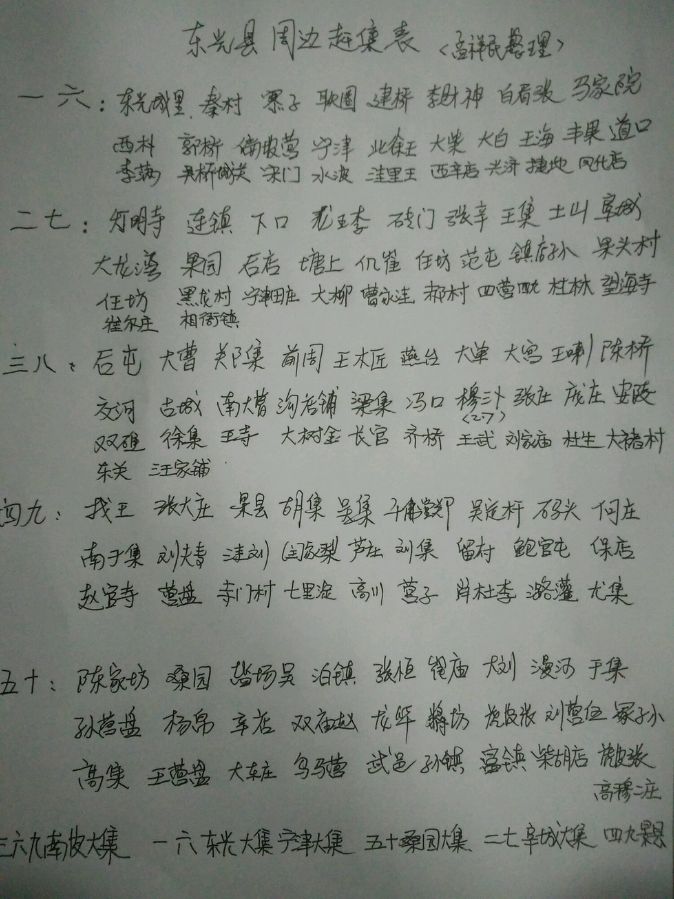 东光县周边赶集表(孟祥民整理)
一六:东光城里 秦村 寨子 耿圈 建桥 李财神 白眉张 马家院
西朴 郭桥 宁津 大柴 大白 王海 丰果 道口
李落 吴桥城关 宋门 水波 洼里王 西辛店 兴济 捷地 同化店
二七:灯明寺 连镇 下口 龙王李 砖门 张辛 王集 土山 阜城
大龙湾 果园 石店 塘上 仉崔 任坊 范屯 镇店孙 果头村
任坊 黑龙村 宁津田庄 大柳 曹家洼 郝村 四营 杜林 望海寺
崔尔庄 相衙镇
三八:后屯 大曹 郑集 前周 王木匠 燕台 大单 大宫 王喇 陈桥
交河 古城 南大曹 沟店铺 梁集 冯口 穆三卜 张庄 庞庄 安陵
(27)
双碓 徐集 王寺 大树金 长官 齐桥 王武 刘家庙 杜生 大褚村
东关 汪家铺
四九:找王 张大庄 景县 胡集 吴集 吴定杆 码头 何庄
南于集 刘夫青 洼刘 闫家梨 芦庄 刘集 留村 鲍官屯 保店
赵官寺 营盘 寺门村 七里淀 高川 营子 肖杜李 潞灌 尤集
五十:陈家坊 桑园 盐场吴 泊镇 张恒 崔庙 大刘 漫河 于集
孙营盘 杨帛 辛店 双庙赵 龙华 蒋坊 虎皮张 刘营伍 冢子孙
高集 王营盘 大车庄 乌马营 武邑 孙镇 富镇 柴胡店 虎皮张
高穆二庄
三六九南皮大集 一六东光大集宁津大集 五十桑园大集 二七辛城大集 四九景县